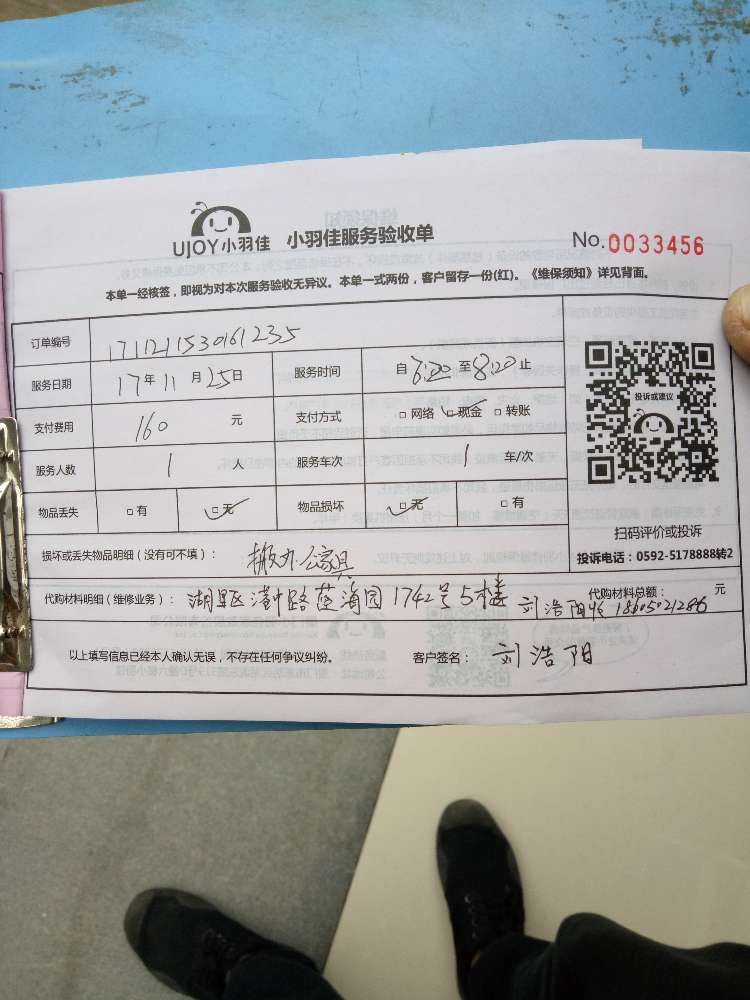 UJOY小羽佳 小羽佳服务验收单 No.0033456
本单一经核签，即视为对本次服务验收无异议。本单一式两份，客户留存一份(红)。《维保须知》详见背面。
订单编号 1711211530161235
服务日期 17年11月25日 服务时间 自6:20至8:20止
支付费用 160 元 支付方式 □网络 □现金 □转账
投诉或建议
服务人数 1 人 服务车次 1 车/次
物品丢失 □有 □无 物品损坏 □无 □有
扫码评价或投诉
损坏或丢失物品明细（没有可不填）： 搬办公家具
投诉电话：0592-5178888转2
代购材料明细（维修业务）： 湖里区 路 园1742号5楼 刘浩阳 18605021286
代购材料总额： 元
以上填写信息已经本人确认无误，不存在任何争议纠纷。 客户签名： 刘浩阳